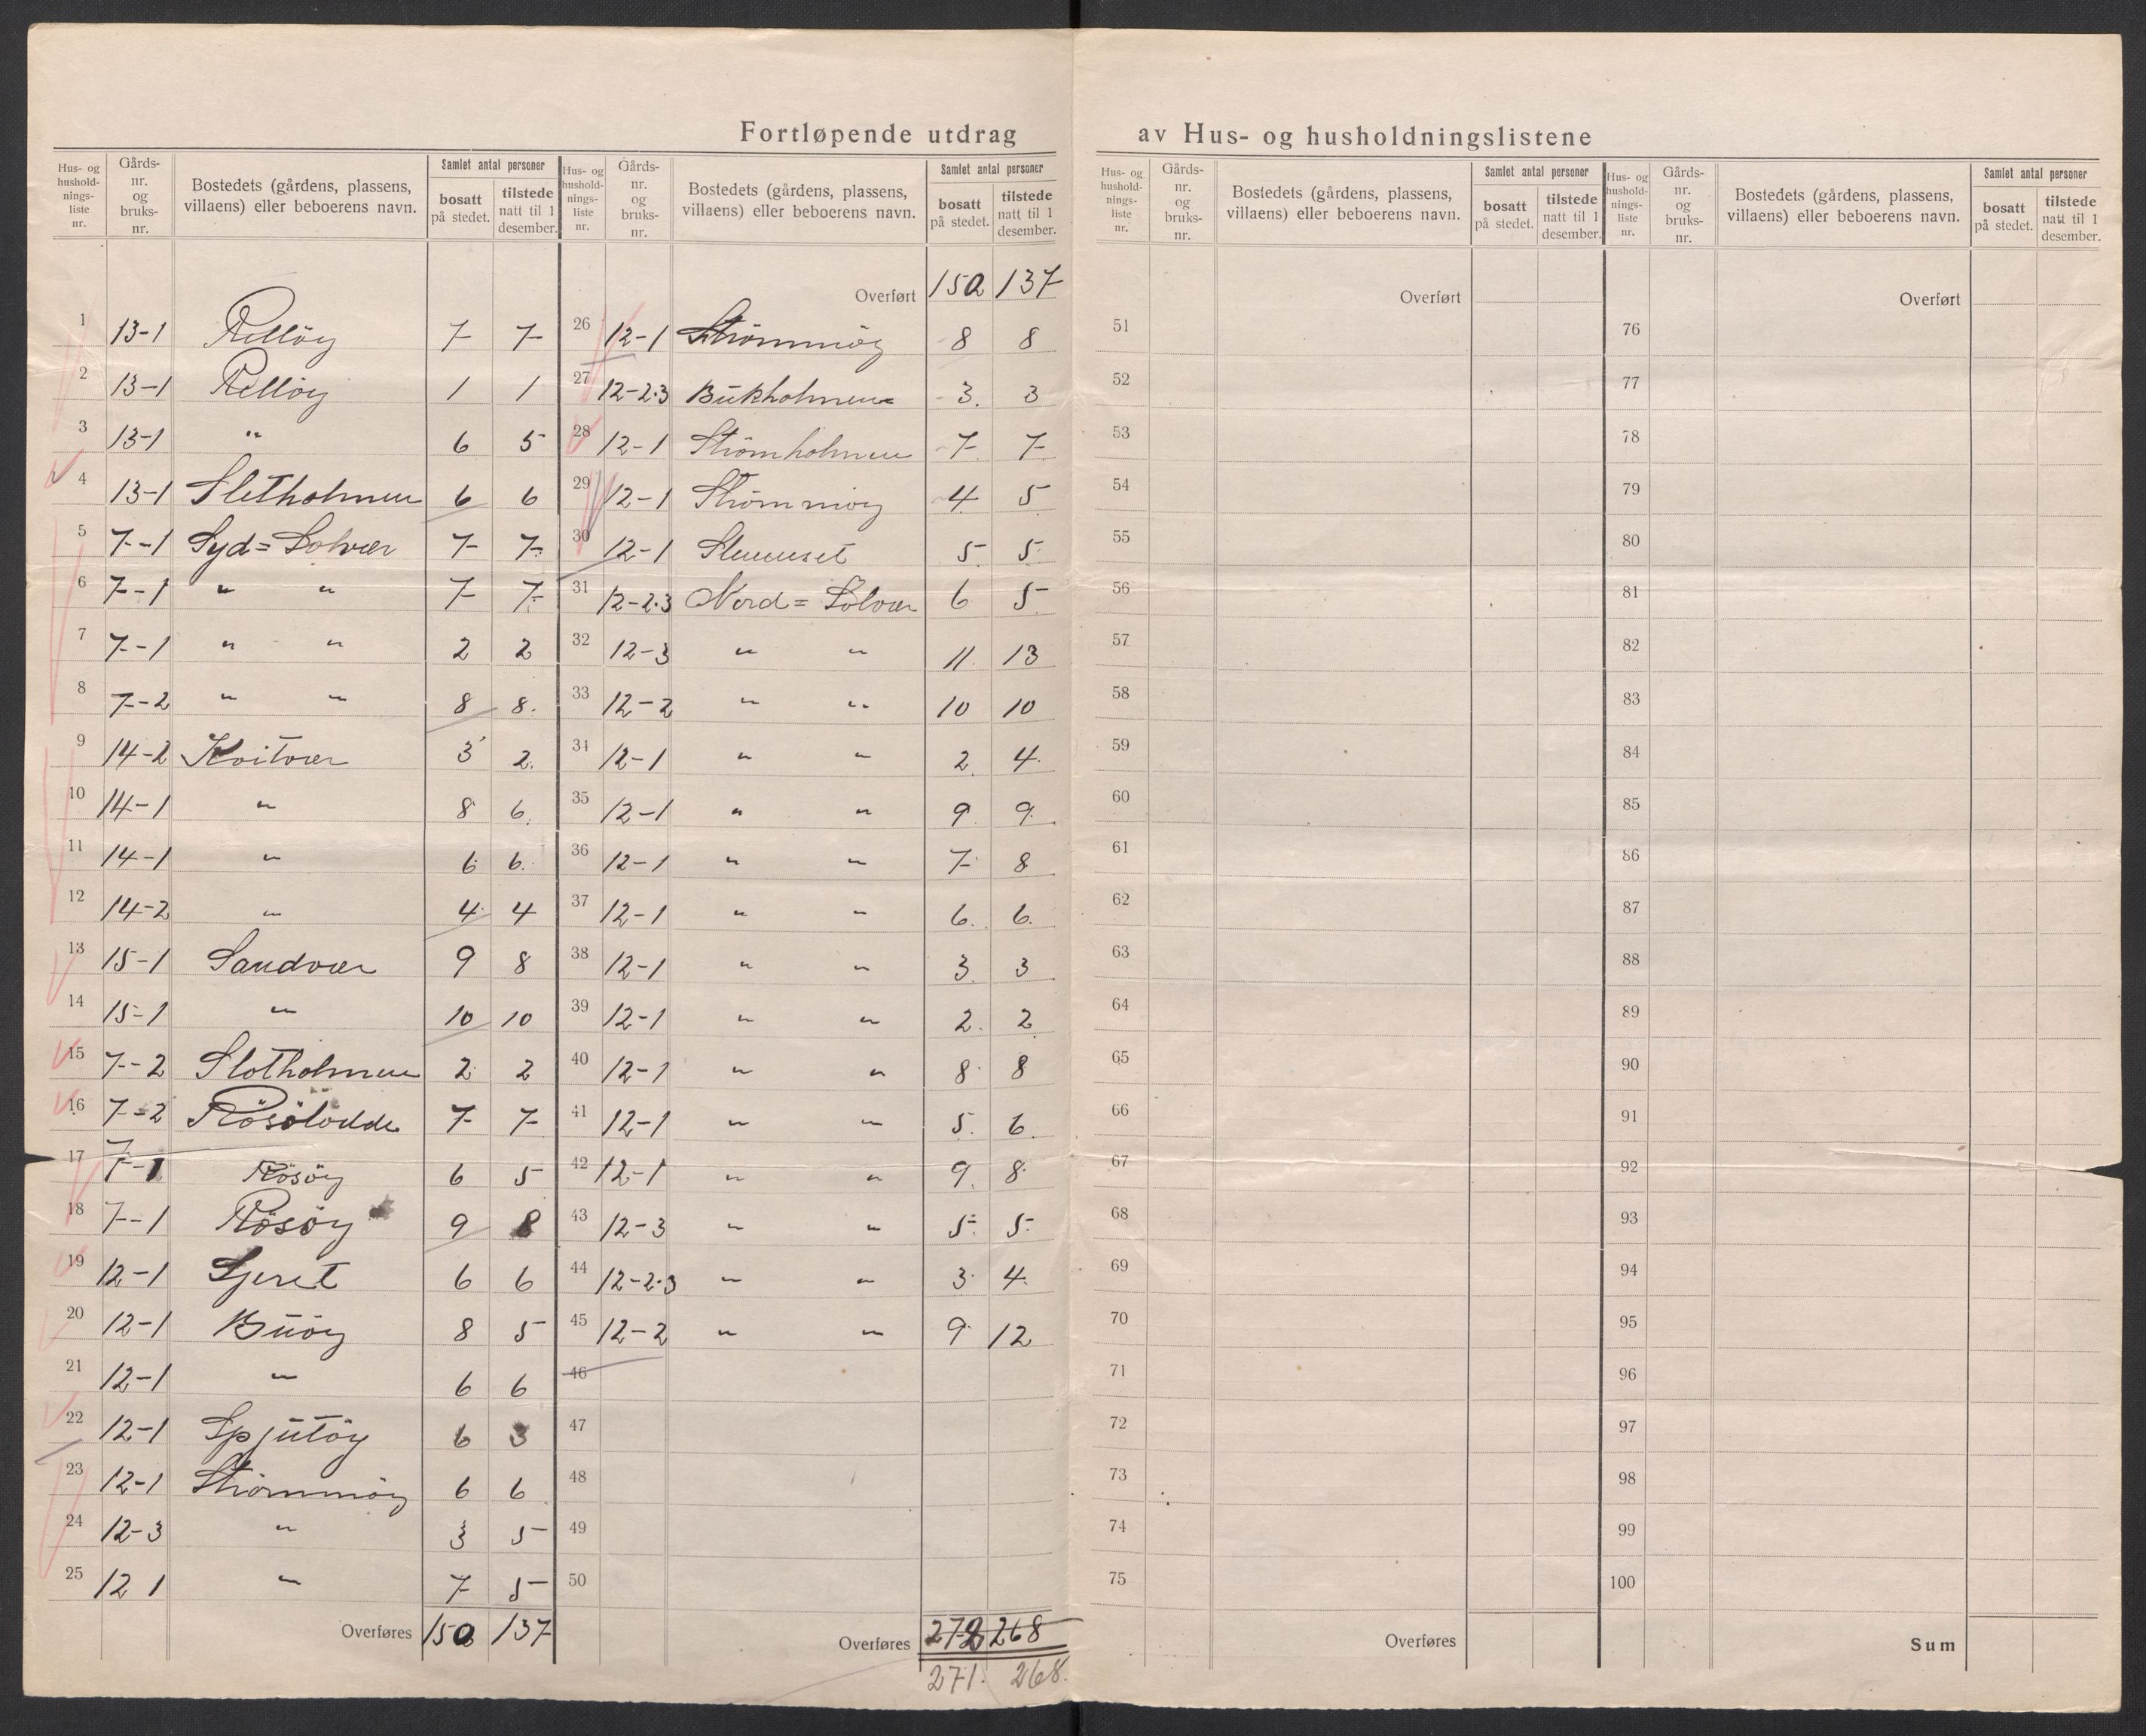 Fortløpende utdrag av Hus- og husholdningslistene
Hus- og husholdningsliste nr. | Gårdsnr. og bruksnr. | Bostedets (gårdens, plassens, villaens) eller beboerens navn. | Samlet antal personer: bosatt på stedet. | tilstede natt til 1 desember.
1 13-1 Relløy 7 7
2 13-1 Relløy 1 1
3 13-1 " 6 5
4 13-1 Sletholmen 6 6
5 7-1 Syd=Solvær 7 7
6 7-1 " " 7 7
7 7-1 " " 2 2
8 7-2 " " 8 8.
9 14-2 Kvitvær 3 2.
10 14-1 " 8 6.
11 14-1 " 6 6.
12 14-2 " 4 4
13 15-1 Sandvær 9 8
14 15-1 " 10 10
15 7-2 Slotholmen 2 2
16 7-2 Røsöiodde 7 7
17 7-1 Røsöy 6 5
18 7-1 Røsöy 9 8
19 12-1 Sjeret 6 6
20 12-1 Buöy 8 5
21 12-1 " 6 6
22 12-1 Spjutöy 6 3
23 12-1 Strömmöy 6 6
24 12-3 " 3 5
25 12 1 " 7 5
Overføres 150 137
Hus- og husholdningsliste nr. | Gårdsnr. og bruksnr. | Bostedets (gårdens, plassens, villaens) eller beboerens navn. | Samlet antal personer: bosatt på stedet. | tilstede natt til 1 desember.
Overført 150 137
26 12-1 Strömmöy 8 8
27 12-2.3 Bukholmen 3. 3
28 12-1 Strömholmen 7 7
29 12-1 Strömmöy 4 5
30 12-1 5. 5.
31 12-2.3 Nord=Solvær 6 5
32 12-3 " " 11. 13
33 12-2 " " 10 10
34 12-1 " " 2. 4.
35 12-1 " " 9 9.
36 12-1 " " 7. 8
37 12-1 " " 6. 6.
38 12-1 " " 3. 3
39 12-1 " " 2. 2
40 12-1 " " 8. 8
41 12-1 " " 5. 6.
42 12-1 " " 9. 8.
43 12-3 " " 5. 5.
44 12-2.3 " " 3. 4.
45 12-2 " " 9. 12
46
47
48
49
50
Overføres 272 268
271. 268.
Hus- og husholdningsliste nr. | Gårdsnr. og bruksnr. | Bostedets (gårdens, plassens, villaens) eller beboerens navn. | Samlet antal personer: bosatt på stedet. | tilstede natt til 1 desember.
Overført
51
52
53
54
55
56
57
58
59
60
61
62
63
64
65
66
67
68
69
70
71
72
73
74
75
Overføres
Hus- og husholdningsliste nr. | Gårdsnr. og bruksnr. | Bostedets (gårdens, plassens, villaens) eller beboerens navn. | Samlet antal personer: bosatt på stedet. | tilstede natt til 1 desember.
Overført
76
77
78
79
80
81
82
83
84
85
86
87
88
89
90
91
92
93
94
95
96
97
98
99
100
Sum